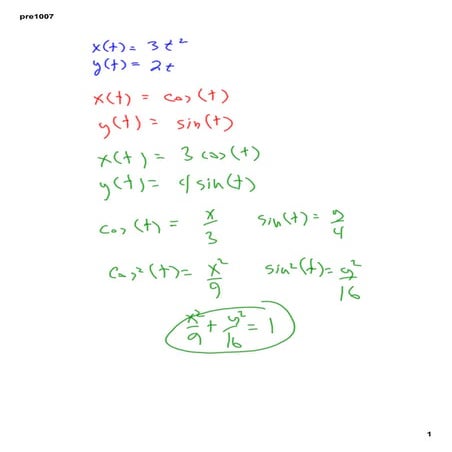 pre1007
x(t) = 3t²
y(t) = 2t
x(t) = cos(t)
y(t) = sin(t)
x(t) = 3 cos(t)
y(t) = 4 sin(t)
cos(t) = x/3 sin(t) = y/4
cos²(t) = x²/9 sin²(t) = y²/16
x²/9 + y²/16 = 1
1